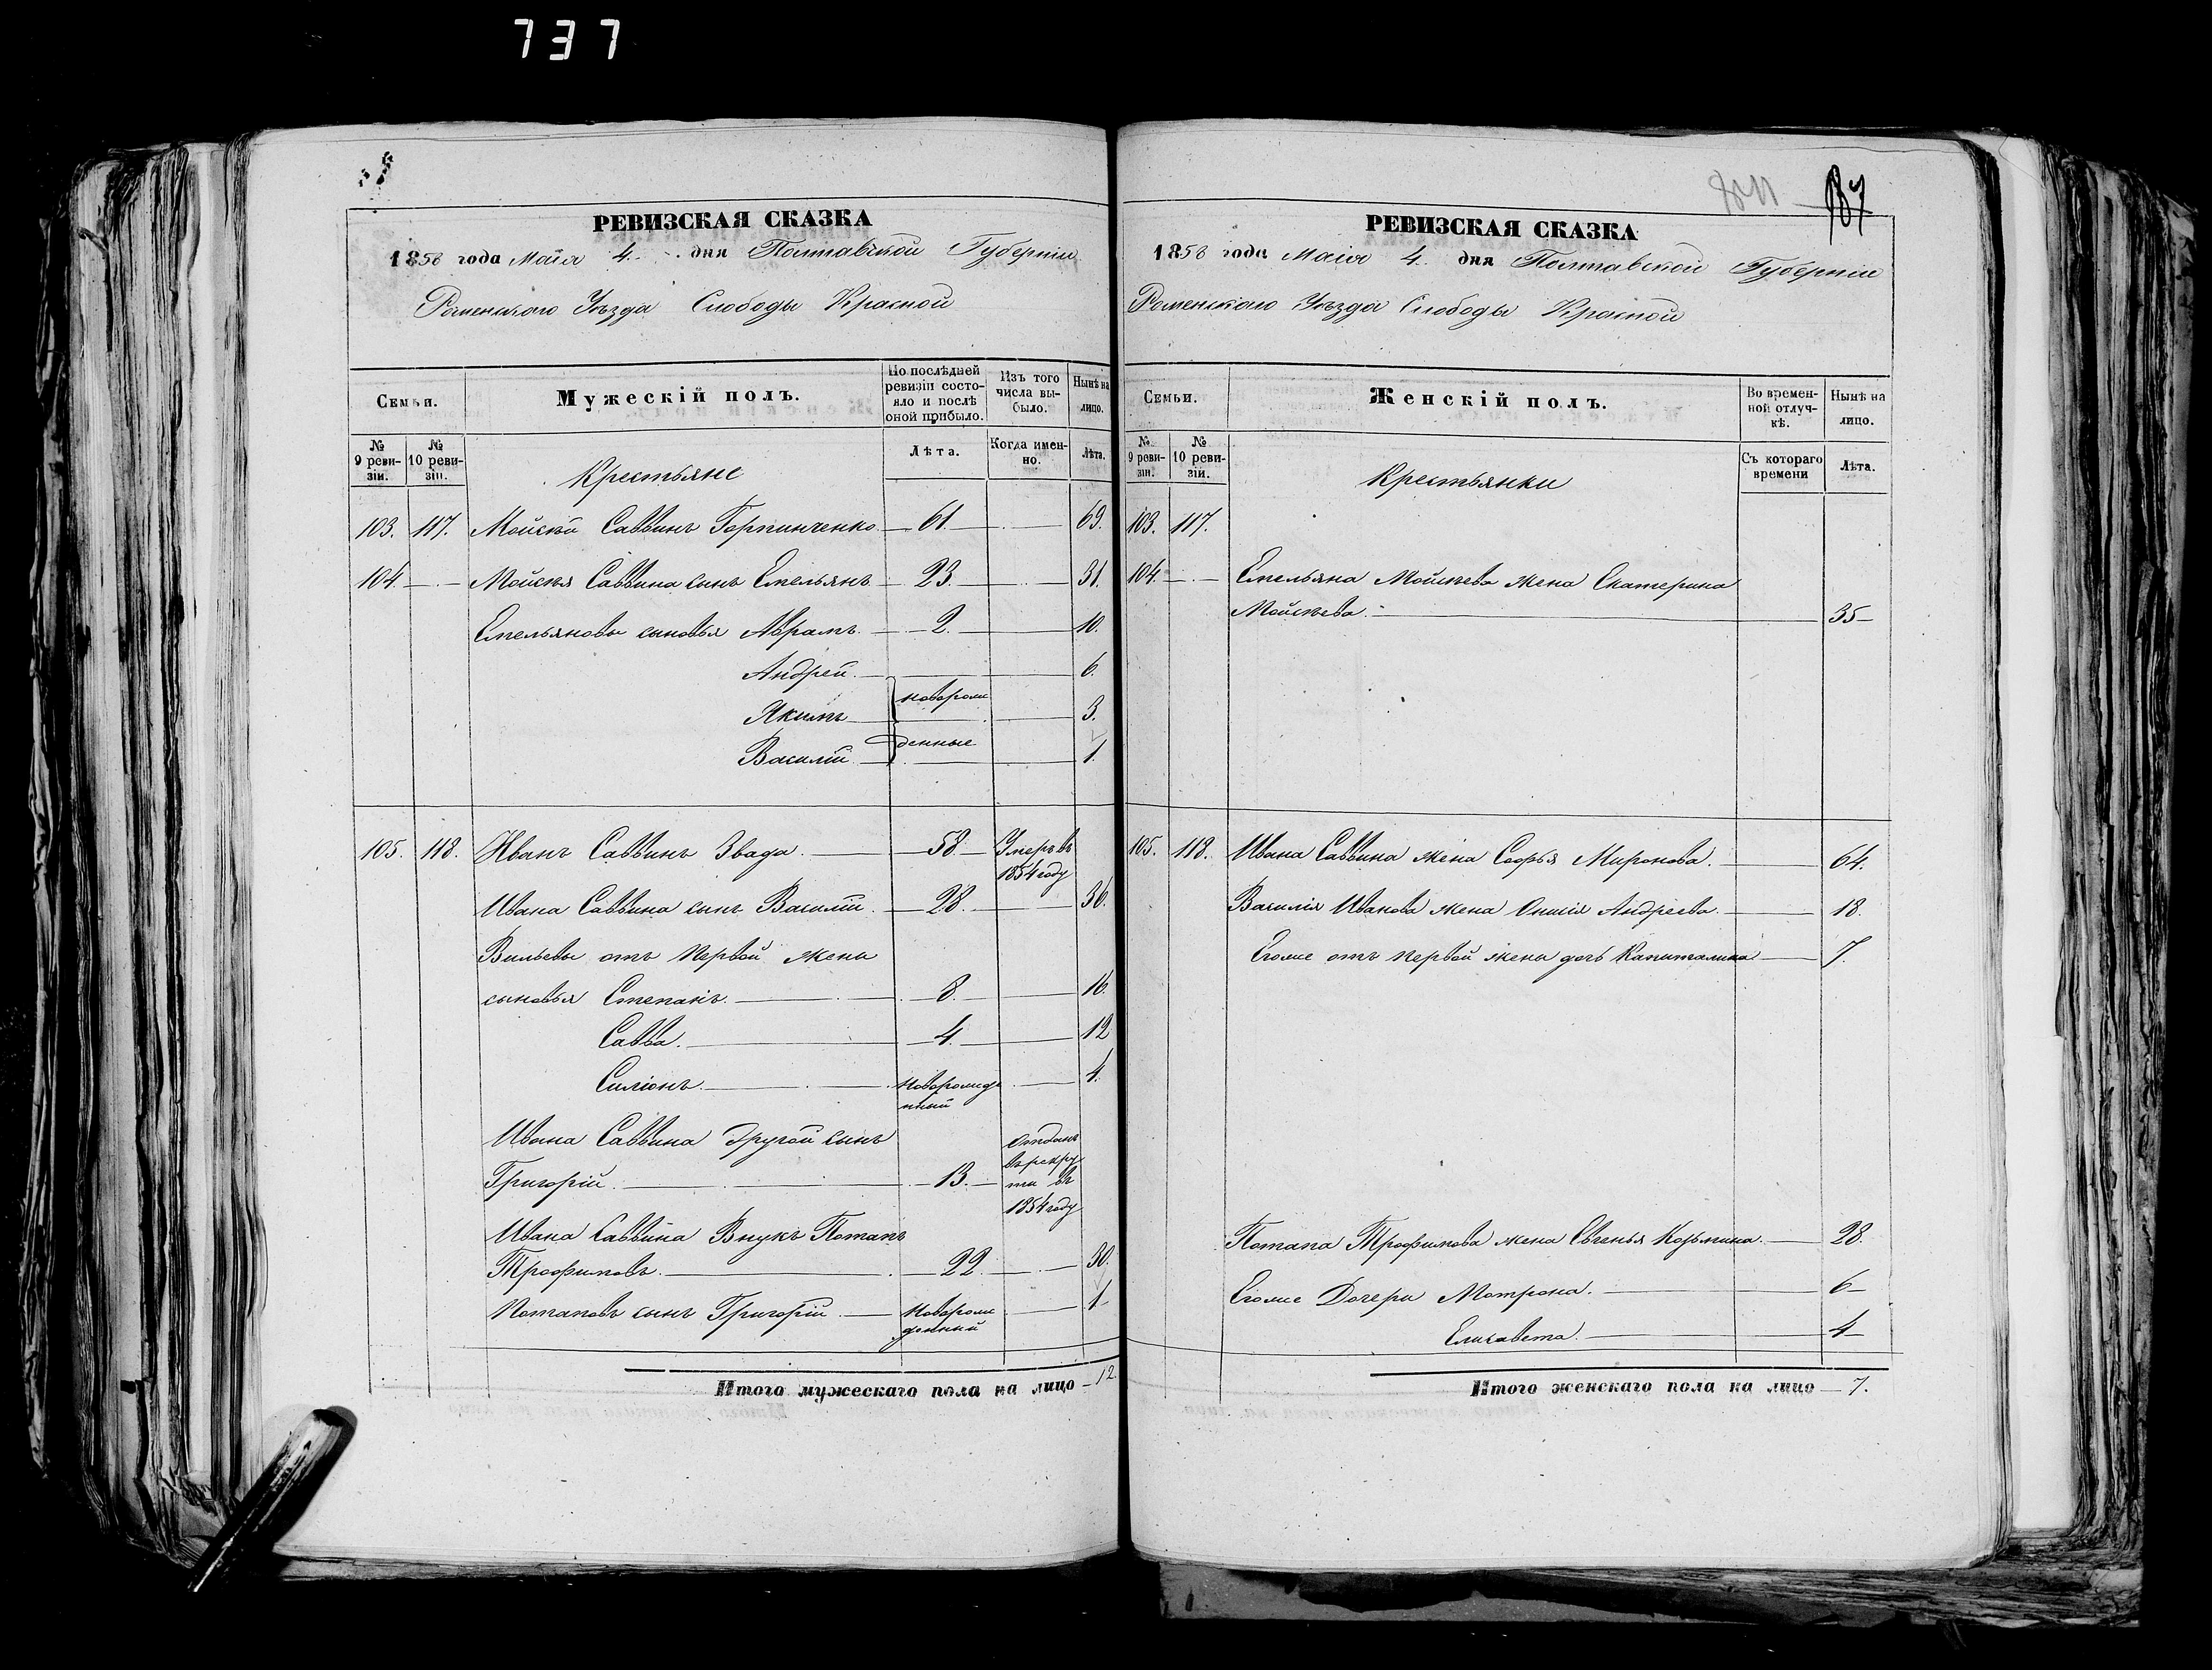 737
РЕВИЗСКАЯ СКАЗКА
1858 года Маія 4. дня Полтавской Губерніи
Роменскаго Уѣзда Слободы Красной
Семьи.
Мужескій полъ.
По послѣдней ревизіи состояло и послѣ оной прибыло.
Изъ того числа выбыло.
Нынѣ на лицо.
№ 9 ревизіи.
№ 10 ревизіи.
Крестьяне
Лѣта.
Когда именно.
Лѣта.
103. 117. Мойсѣй Саввинъ Горпинченко 61. 69.
104. Мойсѣя Саввина сынъ Емельянъ 23. 31.
Емельяновы сыновья Аврамъ. 2. 10.
Андрей. 6.
новорож
Якимъ 3.
денные
Василій. 1.
105. 118. Иванъ Саввинъ Звада. 58 Умеръ въ
1854 году
Ивана Саввина сынъ Василій. 28. 36.
Вильевы отъ первой жены
сыновья Степанъ. 8. 16.
Савва. 4. 12
Силіонъ. новорожде 4.
нный
Ивана Саввина другой сынъ Отданъ
въ рекру
Григорій. 13. ты въ
1854 году
Ивана Саввина Внукъ Потапъ
Трофимовъ. 22. 30.
Потаповъ сынъ Григорій. Новорож 1
денный
Итого мужескаго пола на лицо 12.
187
РЕВИЗСКАЯ СКАЗКА
1858 года Маія 4. дня Полтавской Губерніи
Роменскаго Уѣзда Слободы Красной
Семьи.
Женскій полъ.
Во временной отлучкѣ.
Нынѣ на лицо.
№ 9 ревизіи.
№ 10 ревизіи.
Крестьянки
Съ котораго времени
Лѣта.
103. 117.
104. Емельяна Мойсѣева жена Екатерина
Мойсѣева. 35
105. 118. Ивана Саввина жена Софья Миронова. 64.
Василія Иванова жена Онисія Андреева. 18.
Егоже отъ первой жены дочь Капиталина 7.
Потапа Трофимова жена Евгенья Козьмина. 28.
Егоже Дочери Мотрона. 6
Елисавета. 4
Итого женскаго пола на лицо 7.